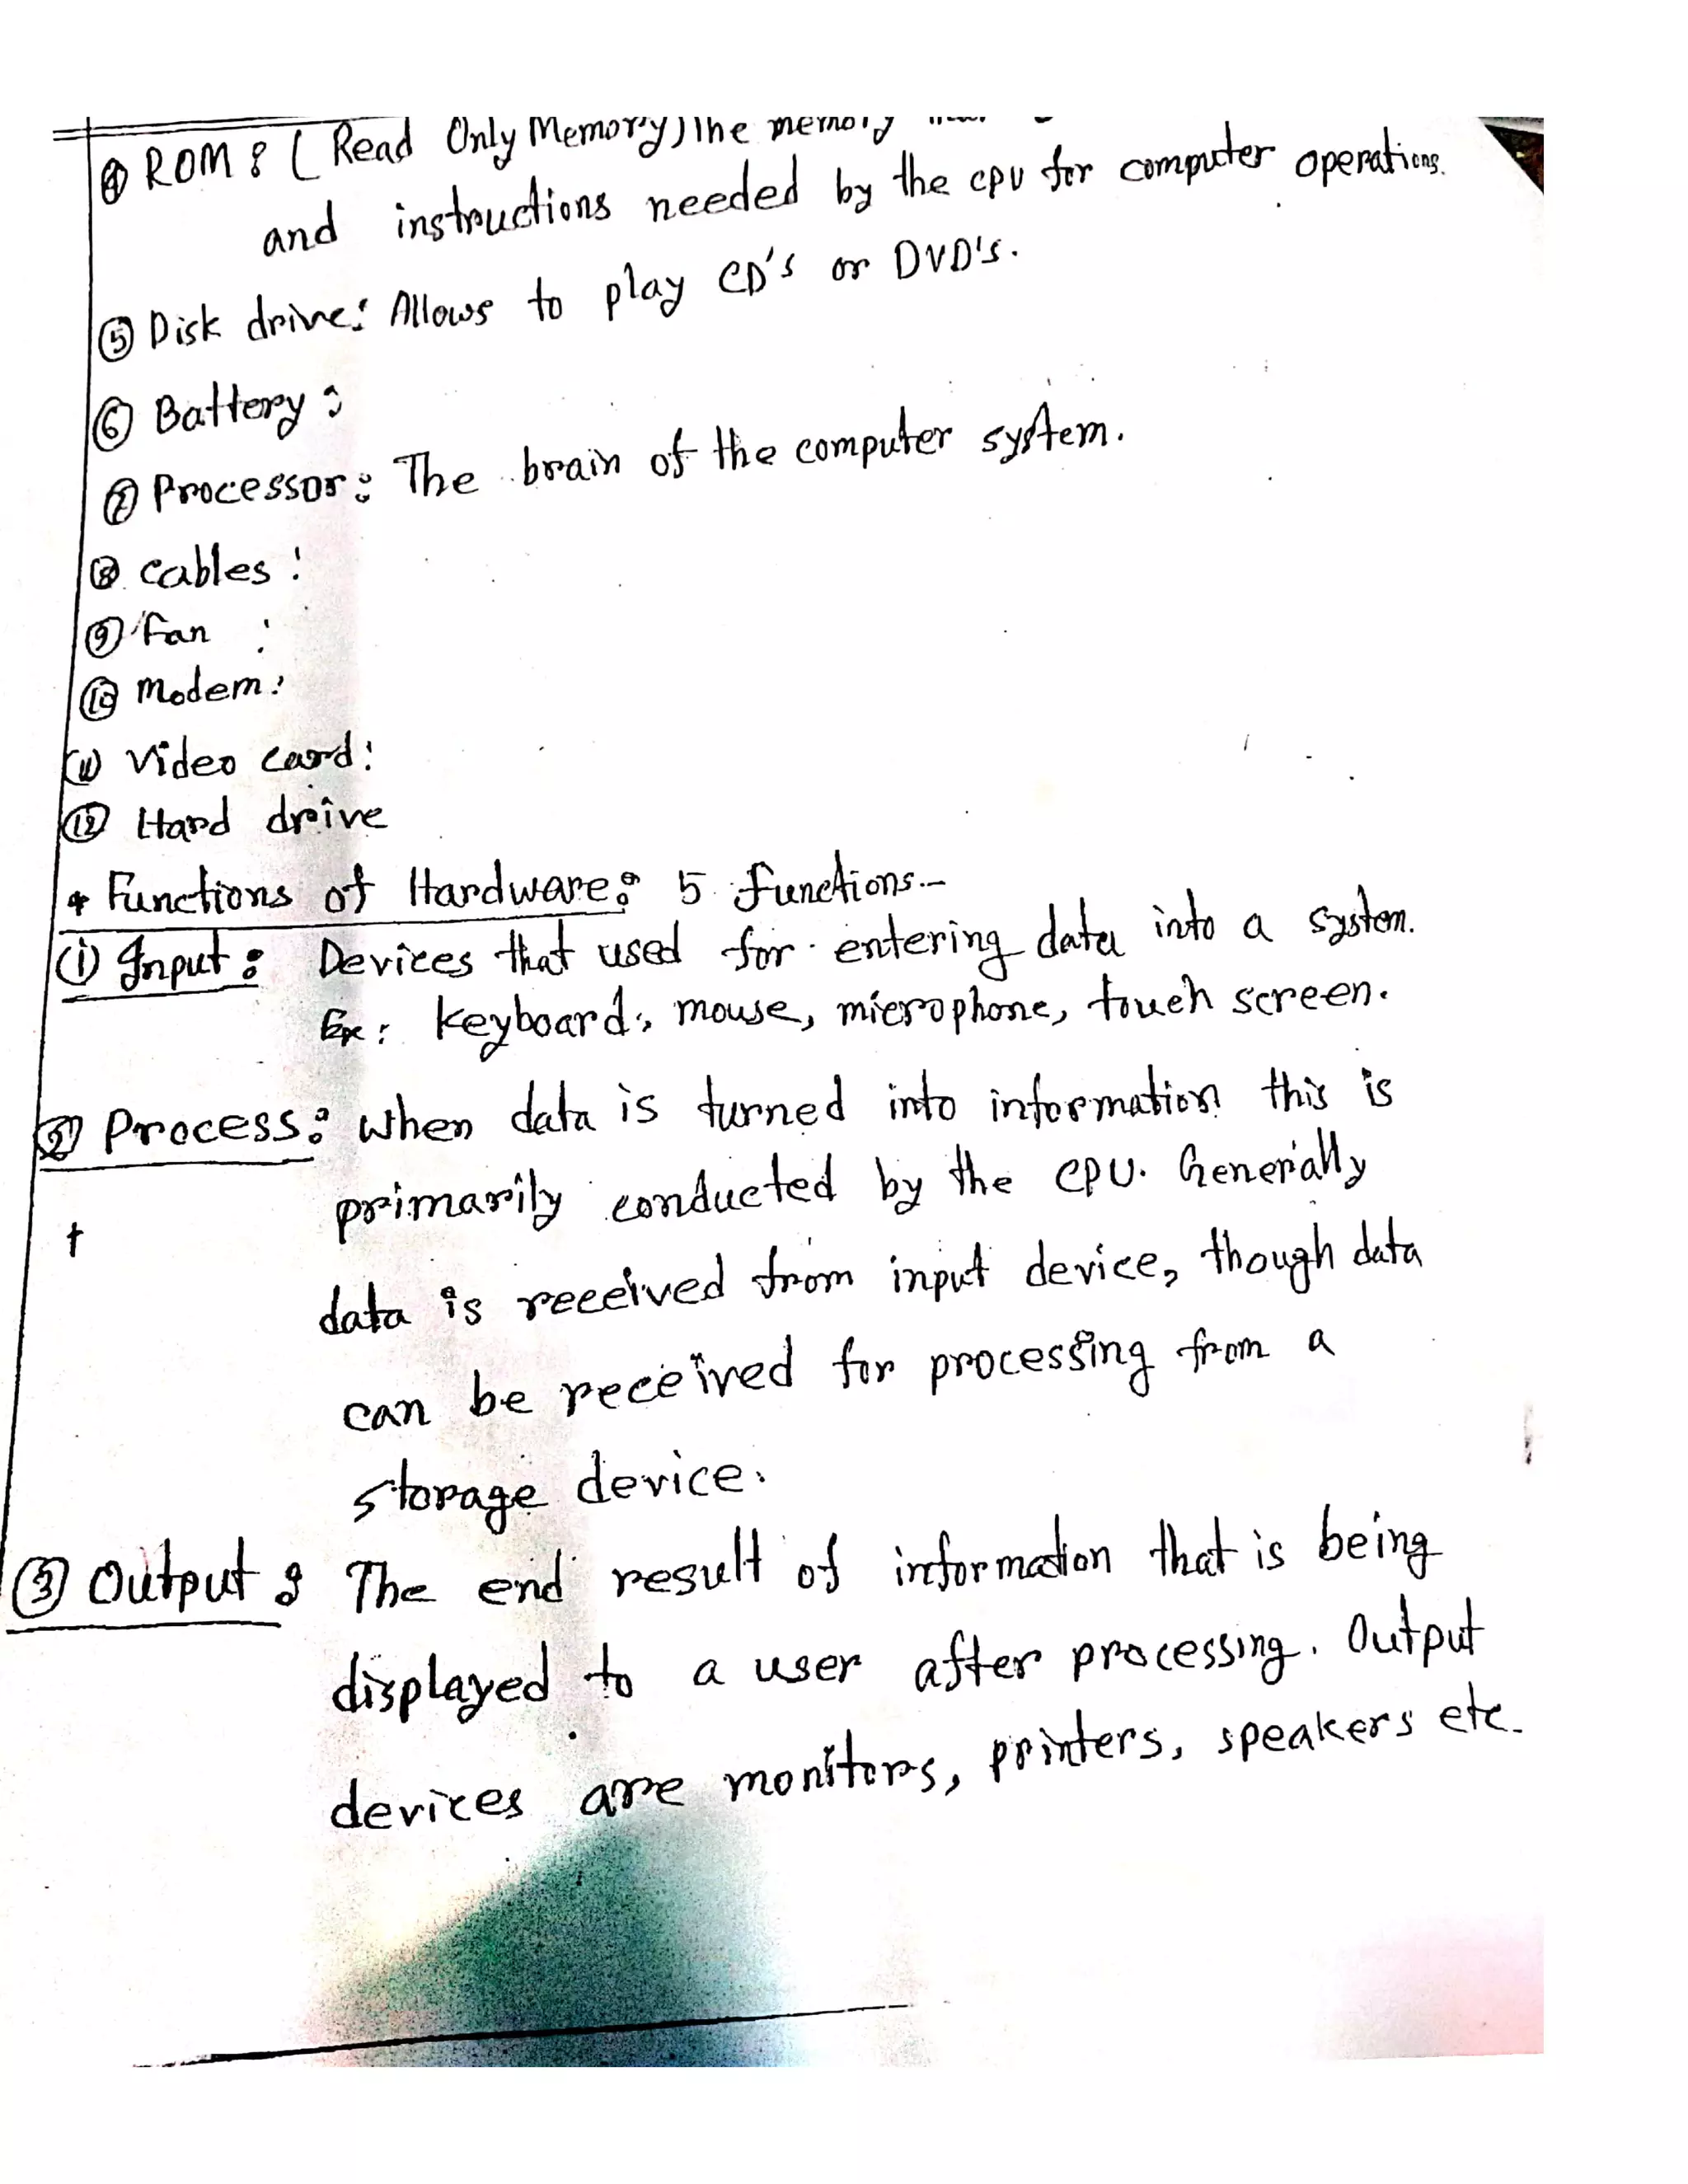 ④ ROM : (Read Only Memory) The memory
and instructions needed by the cpu for computer operations.
⑤ Disk drive: Allows to play CD's or DVD's.
⑥ Battery :
⑦ Processor : The brain of the computer system.
⑧ cables :
⑨ Fan :
⑩ Modem :
⑪ Video card:
⑫ Hard drive
* Functions of Hardware: 5 functions--
(i) Input : Devices that used for entering data into a system.
Ex : keyboard, mouse, microphone, touch screen.
② Process : When data is turned into information this is
primarily conducted by the CPU. Generally
data is received from input device, though data
can be received for processing from a
storage device.
③ Output : The end result of information that is being
displayed to a user after processing. Output
devices are monitors, printers, speakers etc.